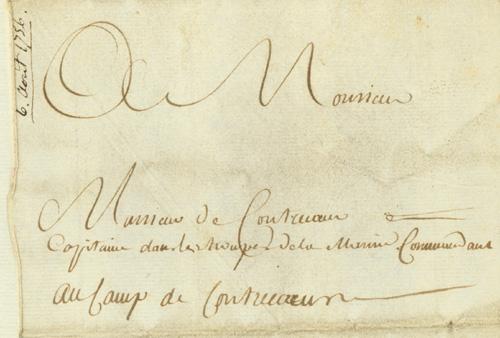 6. Août 1756.
A Monsieur
Monsieur de Contrecoeur
Capitaine dans les troupes de la Marine Commendant
Au Camp de Contrecoeur